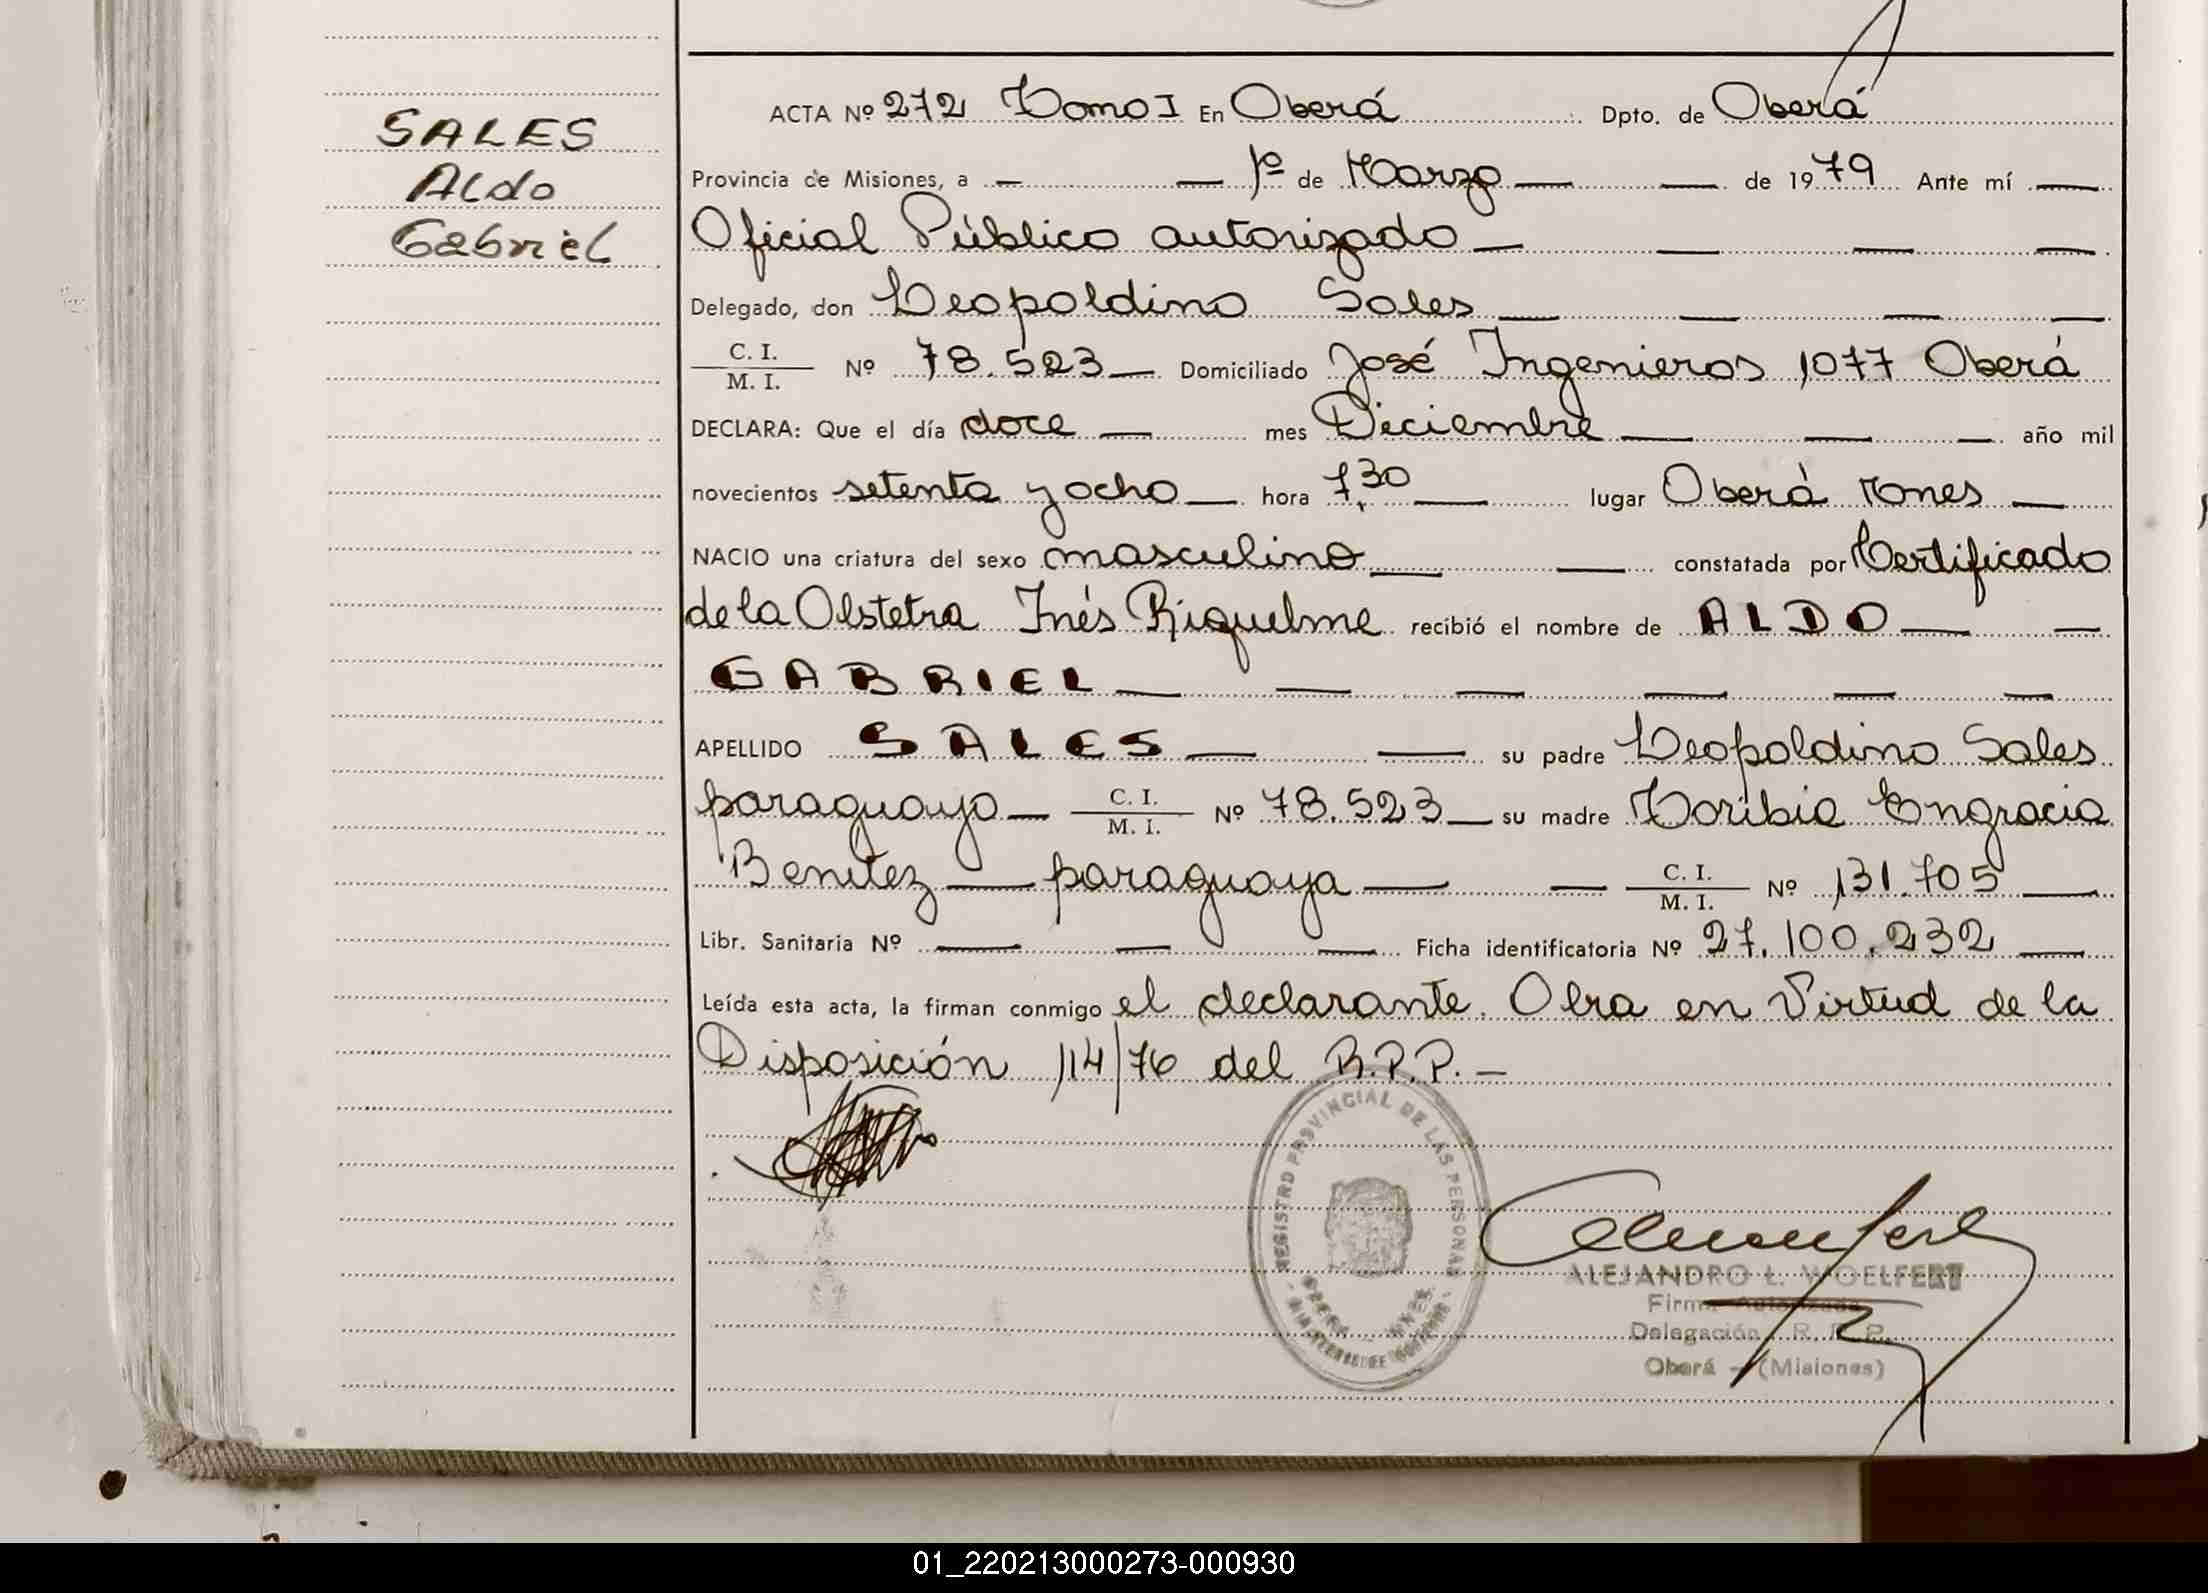 SALES
Aldo
Gabriel
ACTA Nº 272 Tomo I En Oberá Dpto. de Oberá
Provincia de Misiones, a — — 1º de Marzo — — de 1979 Ante mí —
Oficial Público autorizado — — — —
Delegado, don Leopoldino Sales — — — —
C. I. / M. I. Nº 78.523 — Domiciliado José Ingenieros 1077 Oberá
DECLARA: Que el día doce — mes Diciembre — — — año mil
novecientos setenta y ocho — hora 7,30 — lugar Oberá Mnes —
NACIO una criatura del sexo masculino — — constatada por Certificado
de la Obstetra Inés Riquelme recibió el nombre de ALDO — —
GABRIEL — — — — — —
APELLIDO SALES — — su padre Leopoldino Sales
paraguayo — C. I. / M. I. Nº 78.523 — su madre Toribia Engracia
Benitez — paraguaya — — C. I. / M. I. Nº 131.705 —
Libr. Sanitaria Nº — — — Ficha identificatoria Nº 27.100.232 —
Leída esta acta, la firman conmigo el declarante. Obra en Virtud de la
Disposición 114/76 del R.P.P. —
REGISTRO PROVINCIAL DE LAS PERSONAS
ALEJANDRO L. WOELFERT
Firma Autorizada
Delegación R. P. P.
Oberá - (Misiones)
01_220213000273-000930